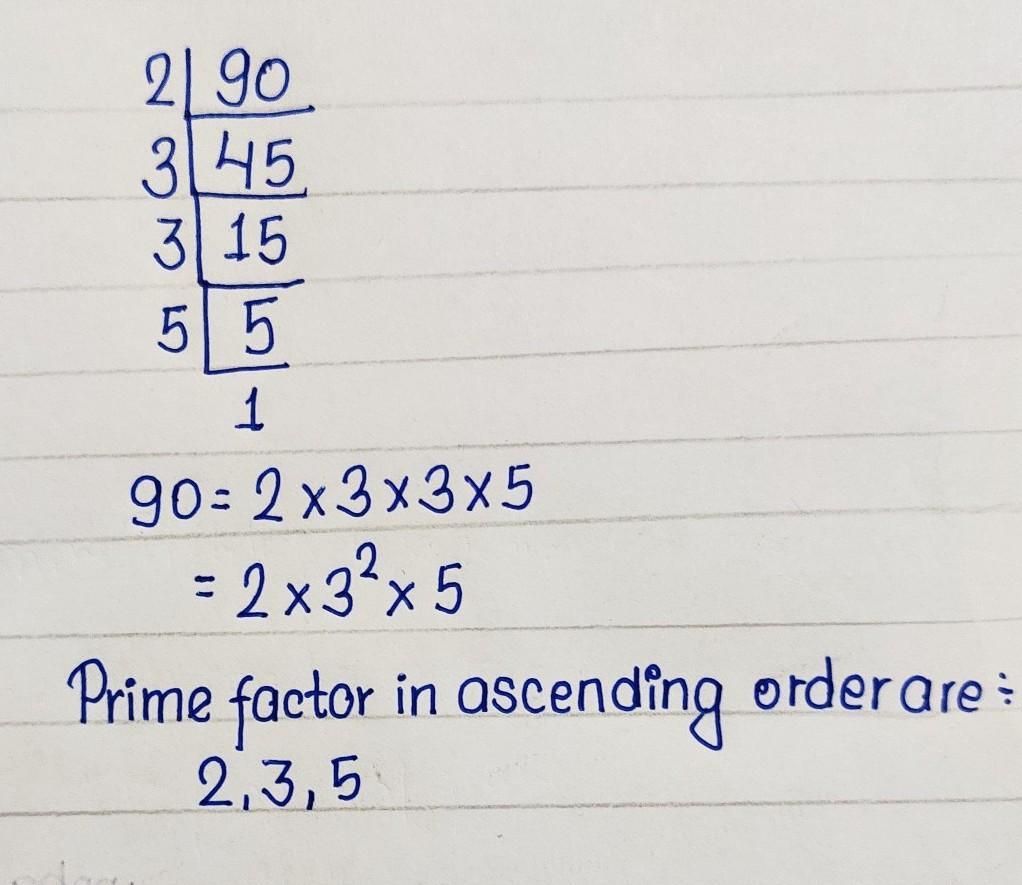 2| 90
3| 45
3| 15
5| 5
1
90 = 2 x 3 x 3 x 5
= 2 x 3² x 5
Prime factor in ascending order are ÷
2, 3, 5